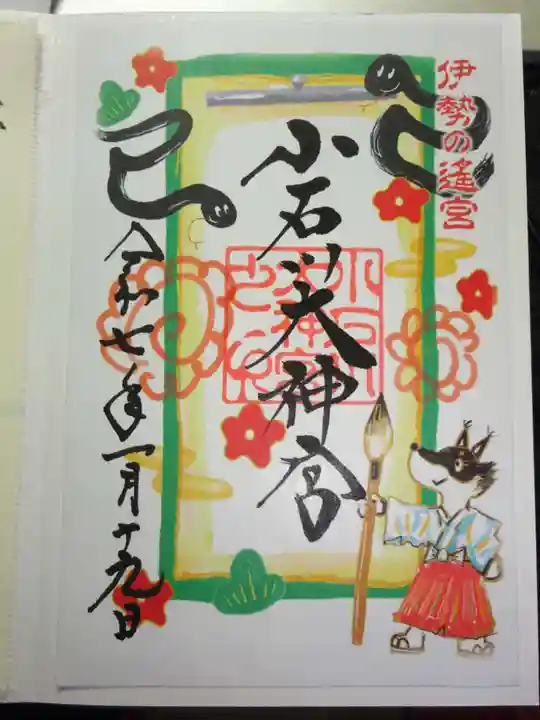 伊勢の遙宮
小石川大神宮
巳
令和七年一月十九日